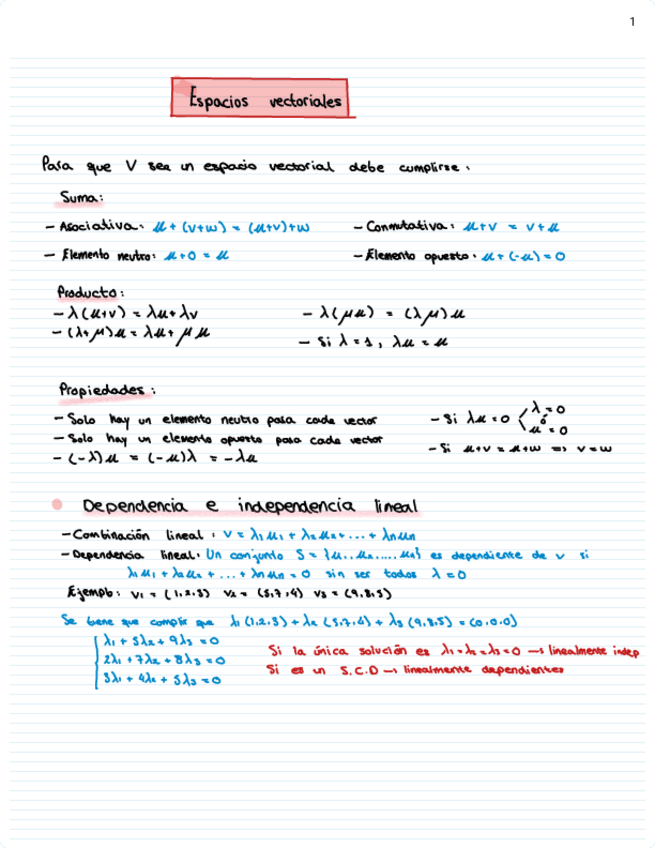 1
Espacios vectoriales
Para que V sea un espacio vectorial debe cumplirse:
Suma:
- Asociativa: u + (v+w) = (u+v)+w - Conmutativa: u+v = v+u
- Elemento neutro: u+0 = u - Elemento opuesto: u+(-u)=0
Producto:
- λ(u+v) = λu+λv - λ(μu) = (λμ)u
- (λ+μ)u = λu + μu - Si λ=1, λu = u
Propiedades:
- Solo hay un elemento neutro para cada vector - Si λu=0 λ=0 ó u=0
- Solo hay un elemento opuesto para cada vector - Si u+v = u+w => v=w
- (-λ)u = (-u)λ = -λu
Dependencia e independencia lineal
- Combinación lineal: v = λ1u1 + λ2u2+...+λnun
- Dependencia lineal: Un conjunto S = {u1..u2.....un} es dependiente de v si
λ1u1 + λ2u2 + ... + λnun = 0 sin ser todos λ=0
Ejemplo: v1 = (1,2,3) v2 = (5,7,4) v3 = (9,8,5)
Se tiene que cumplir que λ1(1,2,3) + λ2(5,7,4) + λ3(9,8,5) = (0,0,0)
λ1 + 5λ2 + 9λ3 = 0
2λ1 + 7λ2 + 8λ3 = 0 Si la única solución es λ1=λ2=λ3=0 → linealmente indep
3λ1 + 4λ2 + 5λ3 = 0 Si es un S.C.D → linealmente dependientes